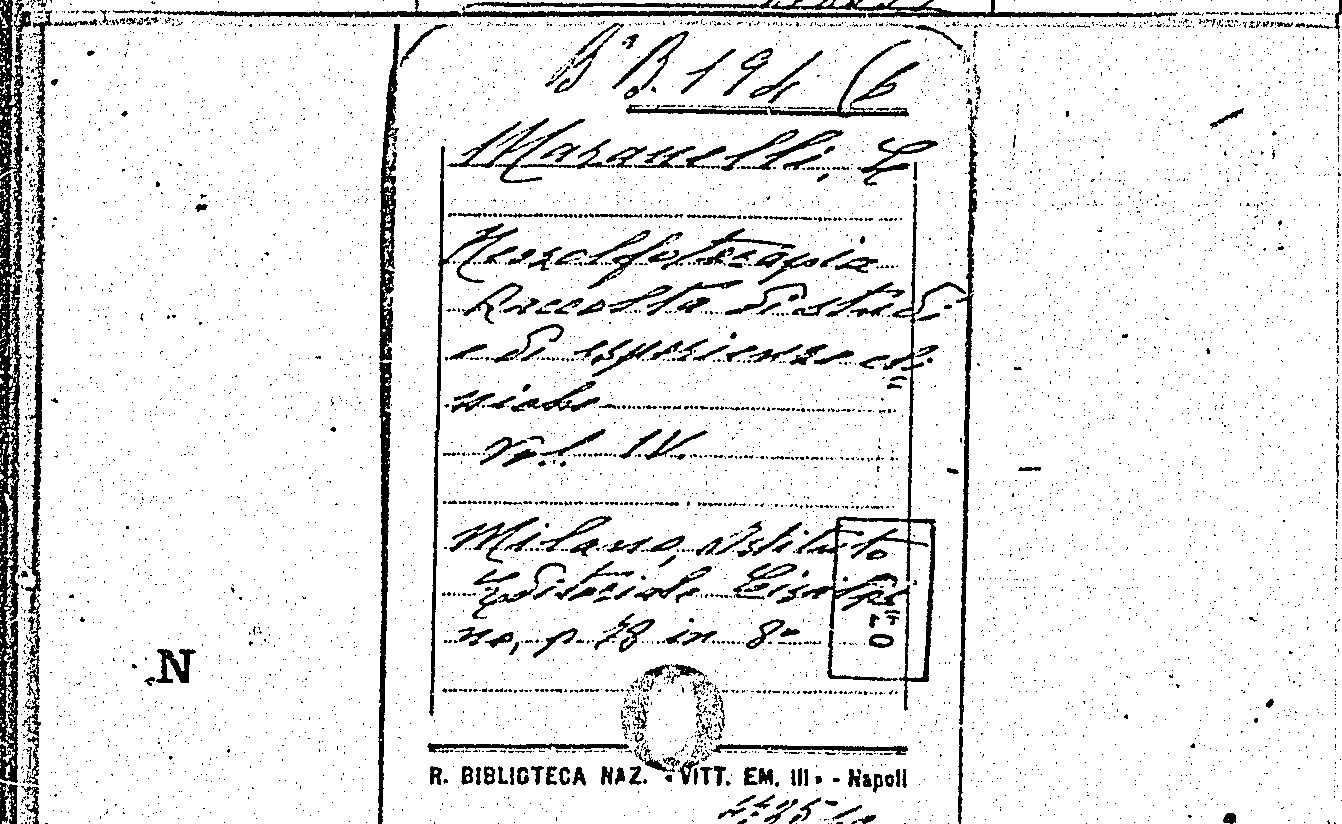 Bª B. 194 (6
Maranelli, G
Nevralfoterapia
Raccolta di studi
e di esperienze cli=
niche
Vol. IV.
Milano, Istituto
Editoriale Cisalpi=
no, p. 78 in 8º
N
R. BIBLIOTECA NAZ. «VITT. EM. III» - Napoli